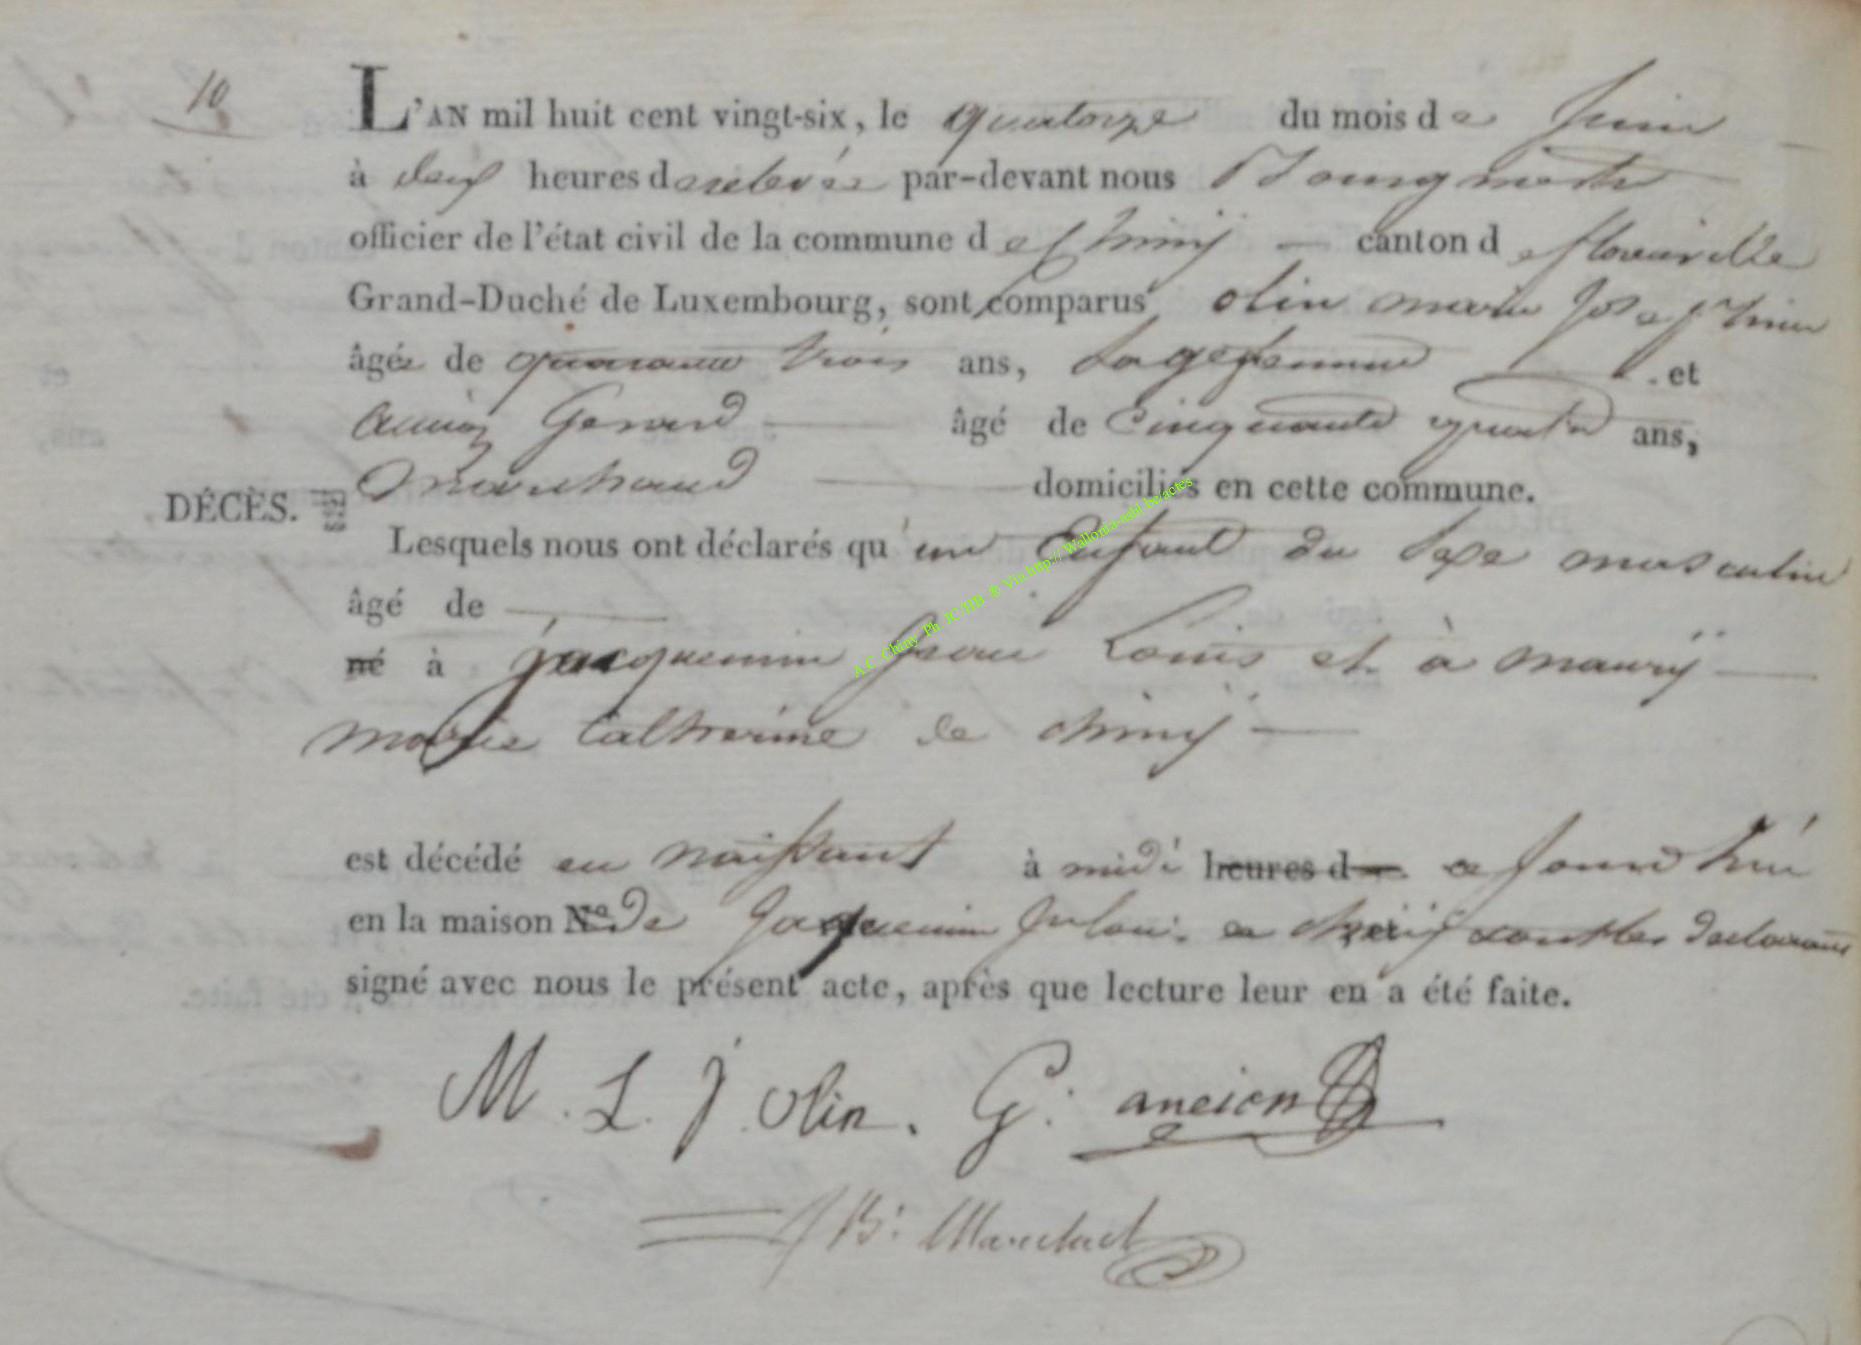 10
L'AN mil huit cent vingt-six, le quatorze du mois de Juin
à deux heures de relevée par-devant nous Bourgmestre
officier de l'état civil de la commune de Chiny canton de florenville
Grand-Duché de Luxembourg, sont comparus olin marie Josephine
âgée de quarante trois ans, Sage femme et
Ancion Gerard âgé de Cinquante quatre ans,
DÉCÈS. Marchand domiciliés en cette commune.
Lesquels nous ont déclarés qu'un Enfant du Sexe masculin
âgé de
né à jacquemin jean Louis et à maury
marie Catherine de chiny
est décédé en naissant à midi heures d ce jourd'hui
en la maison No de Jacquemin Jn louis a chiny et ont les declarans
signé avec nous le présent acte, après que lecture leur en a été faite.
M. L. J. olin. G: ancion
JB: Marechal
A.C. Chiny Ph. JC/HB & Via http:// Wallonia-asbl.be/actes